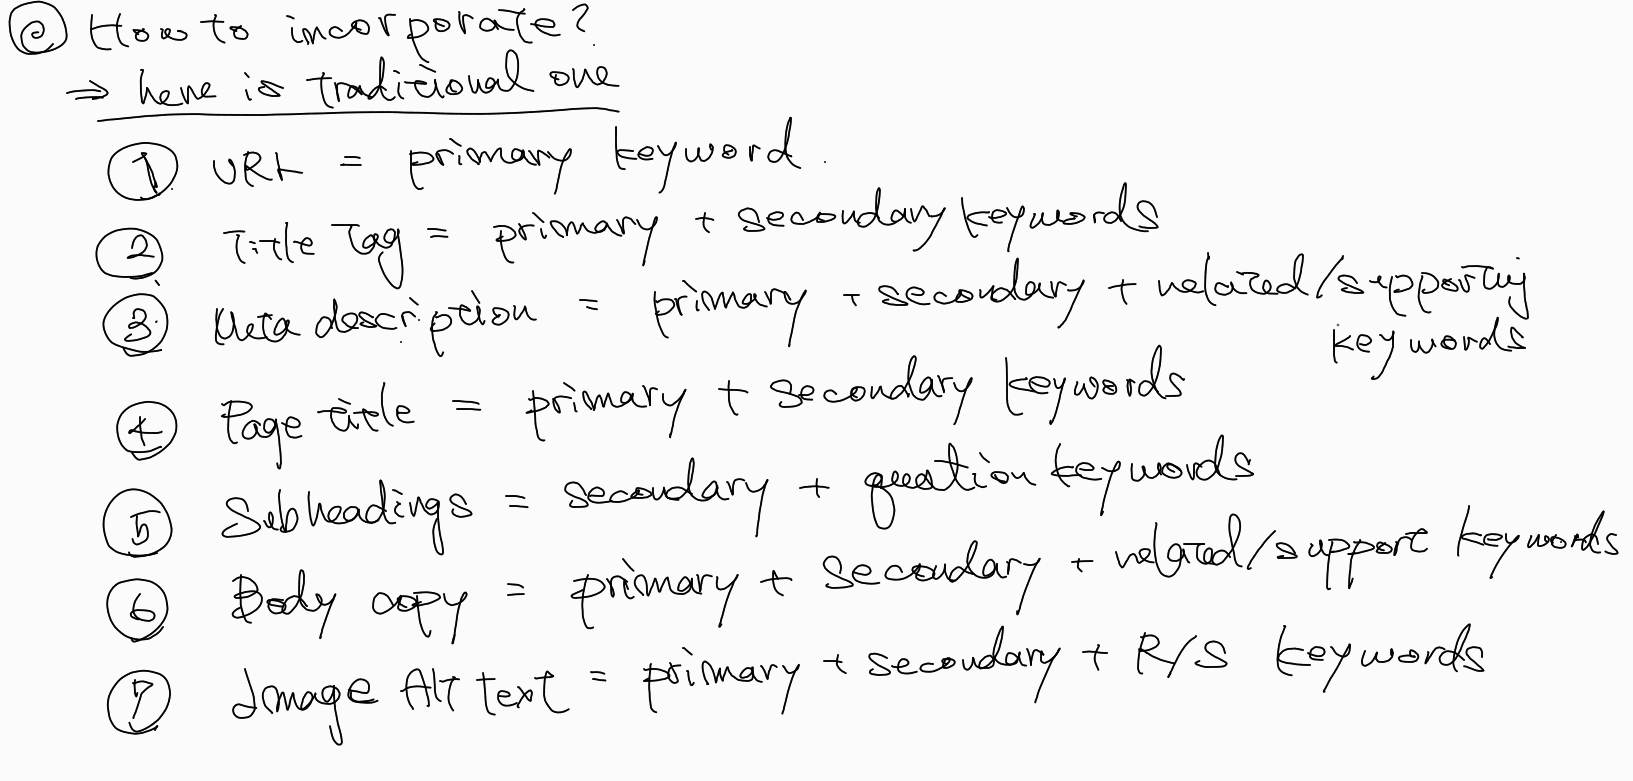 ⓔ How to incorporate?
⇒ here is traditional one
① URL = primary keyword.
② Title Tag = primary + secondary keywords
③ Meta description = primary + secondary + related/supporting
keywords
④ Page title = primary + secondary keywords
⑤ Subheadings = secondary + question keywords
⑥ Body copy = primary + secondary + related/support keywords
⑦ Image Alt text = primary + secondary + R/S keywords